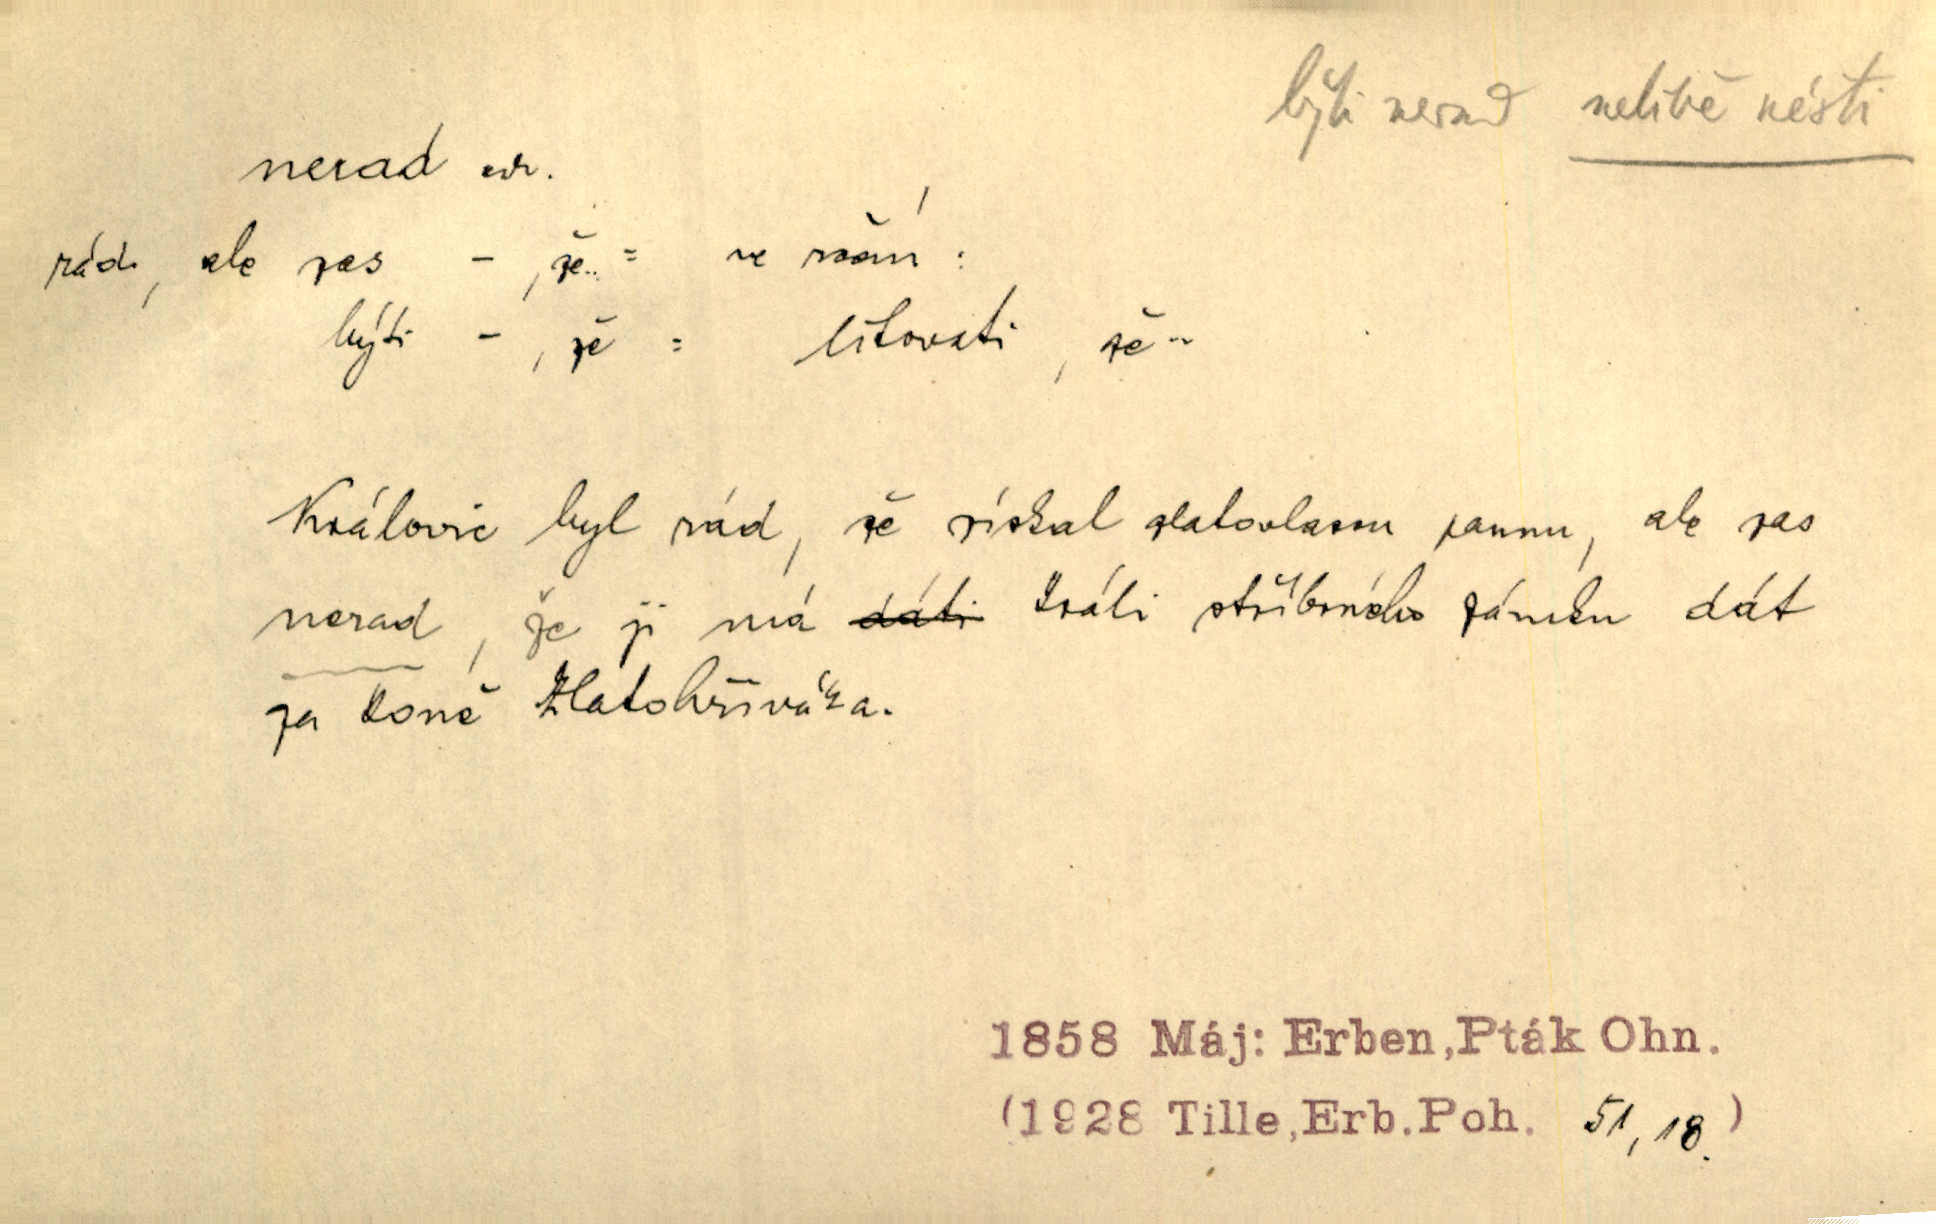 býti nerad nelibě nésti
nerad adv.
rád, ale zas – , že.. = ve rčení :
býti – , že = litovati , že ..
Králevic byl rád, že získal zlatovlasou pannu, ale zas
nerad, že ji má dáti králi stříbrného zámku dát
za koně Zlatohřiváka.
1858 Máj: Erben, Pták Ohn.
(1928 Tille, Erb. Poh. 51, 18.)